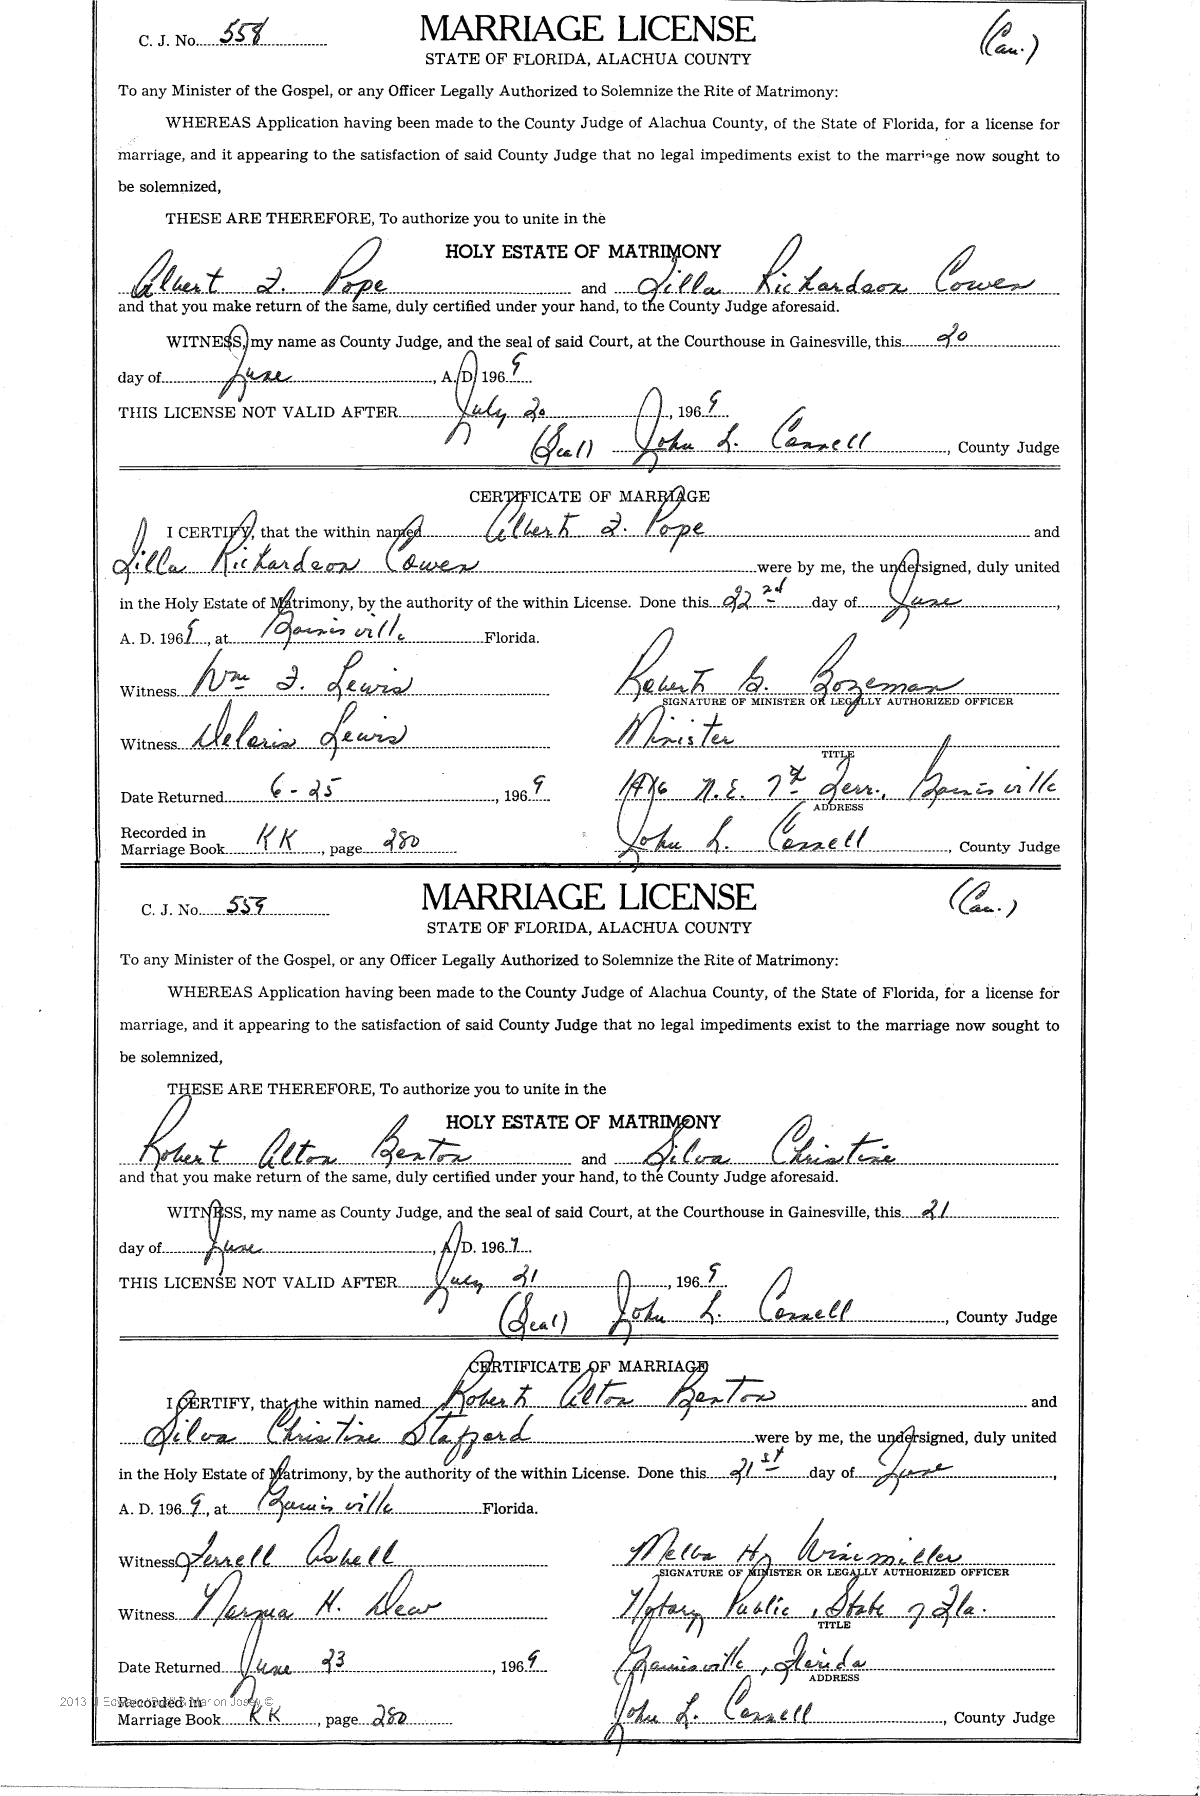 C. J. No. 558 MARRIAGE LICENSE (Cau.)
STATE OF FLORIDA, ALACHUA COUNTY
To any Minister of the Gospel, or any Officer Legally Authorized to Solemnize the Rite of Matrimony:
WHEREAS Application having been made to the County Judge of Alachua County, of the State of Florida, for a license for
marriage, and it appearing to the satisfaction of said County Judge that no legal impediments exist to the marriage now sought to
be solemnized,
THESE ARE THEREFORE, To authorize you to unite in the
HOLY ESTATE OF MATRIMONY
Albert F. Pope and Lilla Richardson Cowen
and that you make return of the same, duly certified under your hand, to the County Judge aforesaid.
WITNESS, my name as County Judge, and the seal of said Court, at the Courthouse in Gainesville, this 20
day of June, A. D. 1969
THIS LICENSE NOT VALID AFTER July 20, 1969
(Seal) John L. Connell, County Judge
CERTIFICATE OF MARRIAGE
I CERTIFY, that the within named Albert F. Pope and
Lilla Richardson Cowen were by me, the undersigned, duly united
in the Holy Estate of Matrimony, by the authority of the within License. Done this 22nd day of June,
A. D. 1969, at Gainisville Florida.
Witness Wm F. Lewis Robert G. Bozeman
SIGNATURE OF MINISTER OR LEGALLY AUTHORIZED OFFICER
Witness Deloris Lewis Minister
TITLE
Date Returned 6-25, 1969 N.E. 7th Terr., Gainisville
ADDRESS
Recorded in
Marriage Book KK, page 280 John L. Connell, County Judge
C. J. No. 559 MARRIAGE LICENSE (Cau.)
STATE OF FLORIDA, ALACHUA COUNTY
To any Minister of the Gospel, or any Officer Legally Authorized to Solemnize the Rite of Matrimony:
WHEREAS Application having been made to the County Judge of Alachua County, of the State of Florida, for a license for
marriage, and it appearing to the satisfaction of said County Judge that no legal impediments exist to the marriage now sought to
be solemnized,
THESE ARE THEREFORE, To authorize you to unite in the
HOLY ESTATE OF MATRIMONY
Robert Alton Benton and Silva Christine
and that you make return of the same, duly certified under your hand, to the County Judge aforesaid.
WITNESS, my name as County Judge, and the seal of said Court, at the Courthouse in Gainesville, this 21
day of June, A. D. 1969
THIS LICENSE NOT VALID AFTER July 21, 1969
(Seal) John L. Connell, County Judge
CERTIFICATE OF MARRIAGE
I CERTIFY, that the within named Robert Alton Benton and
Silva Christine Stafford were by me, the undersigned, duly united
in the Holy Estate of Matrimony, by the authority of the within License. Done this 21st day of June,
A. D. 1969, at Gainisville Florida.
Witness Ferrell Asbell Melba H. Winemiller
SIGNATURE OF MINISTER OR LEGALLY AUTHORIZED OFFICER
Witness H. Dew Notary Public, State of Fla.
TITLE
Date Returned June 23, 1969 Gainisville, Florida
ADDRESS
Recorded in
Marriage Book KK, page 280 John L. Connell, County Judge